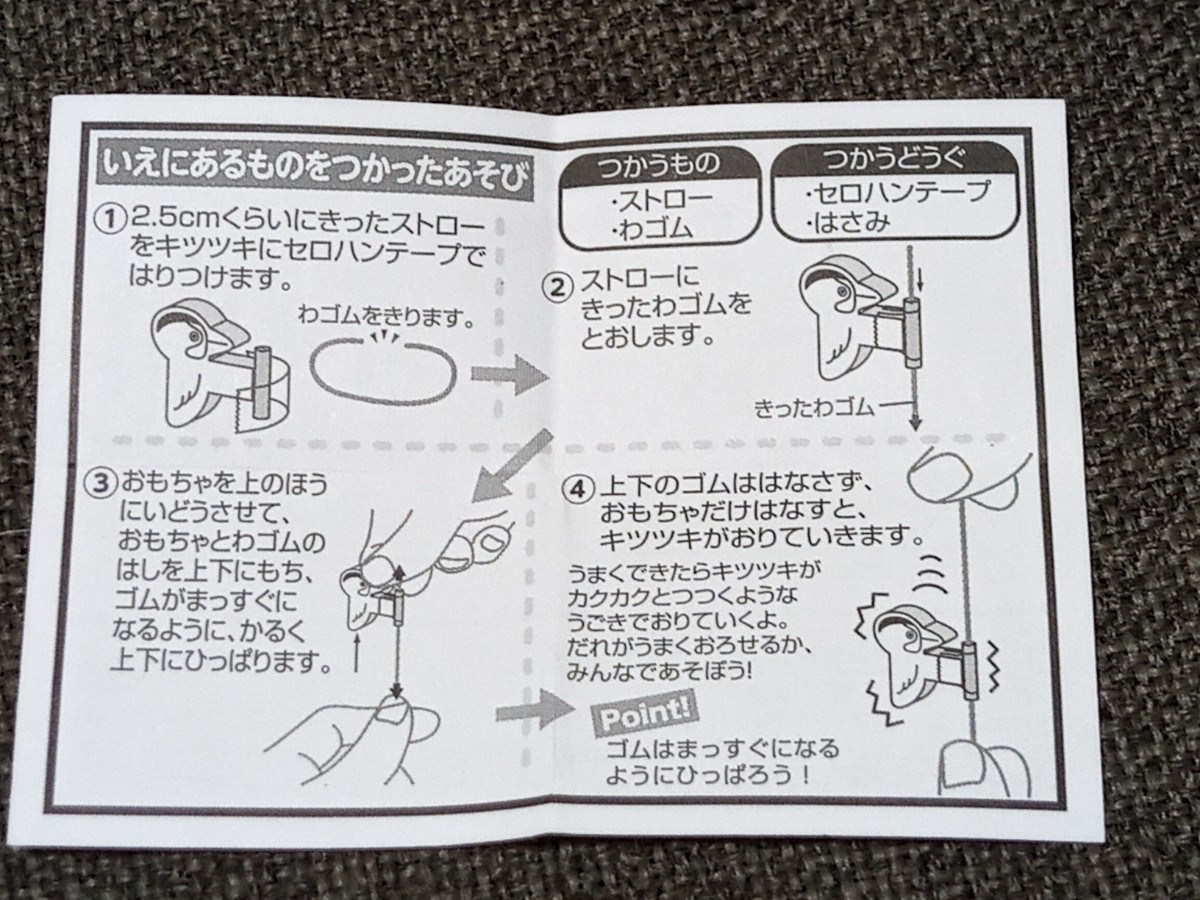 いえにあるものをつかったあそび
つかうもの
・ストロー
・わゴム
つかうどうぐ
・セロハンテープ
・はさみ
①2.5cmくらいにきったストロー
をキツツキにセロハンテープで
はりつけます。
わゴムをきります。
②ストローに
きったわゴムを
とおします。
きったわゴム
③おもちゃを上のほう
にいどうさせて、
おもちゃとわゴムの
はしを上下にもち、
ゴムがまっすぐに
なるように、かるく
上下にひっぱります。
④上下のゴムははなさず、
おもちゃだけはなすと、
キツツキがおりていきます。
うまくできたらキツツキが
カクカクとつつくような
うごきでおりていくよ。
だれがうまくおろせるか、
みんなであそぼう!
Point!
ゴムはまっすぐになる
ようにひっぱろう！